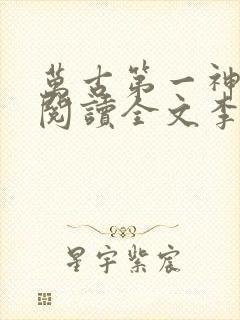 萬古第一神
閱讀全文李
星宇紫宸